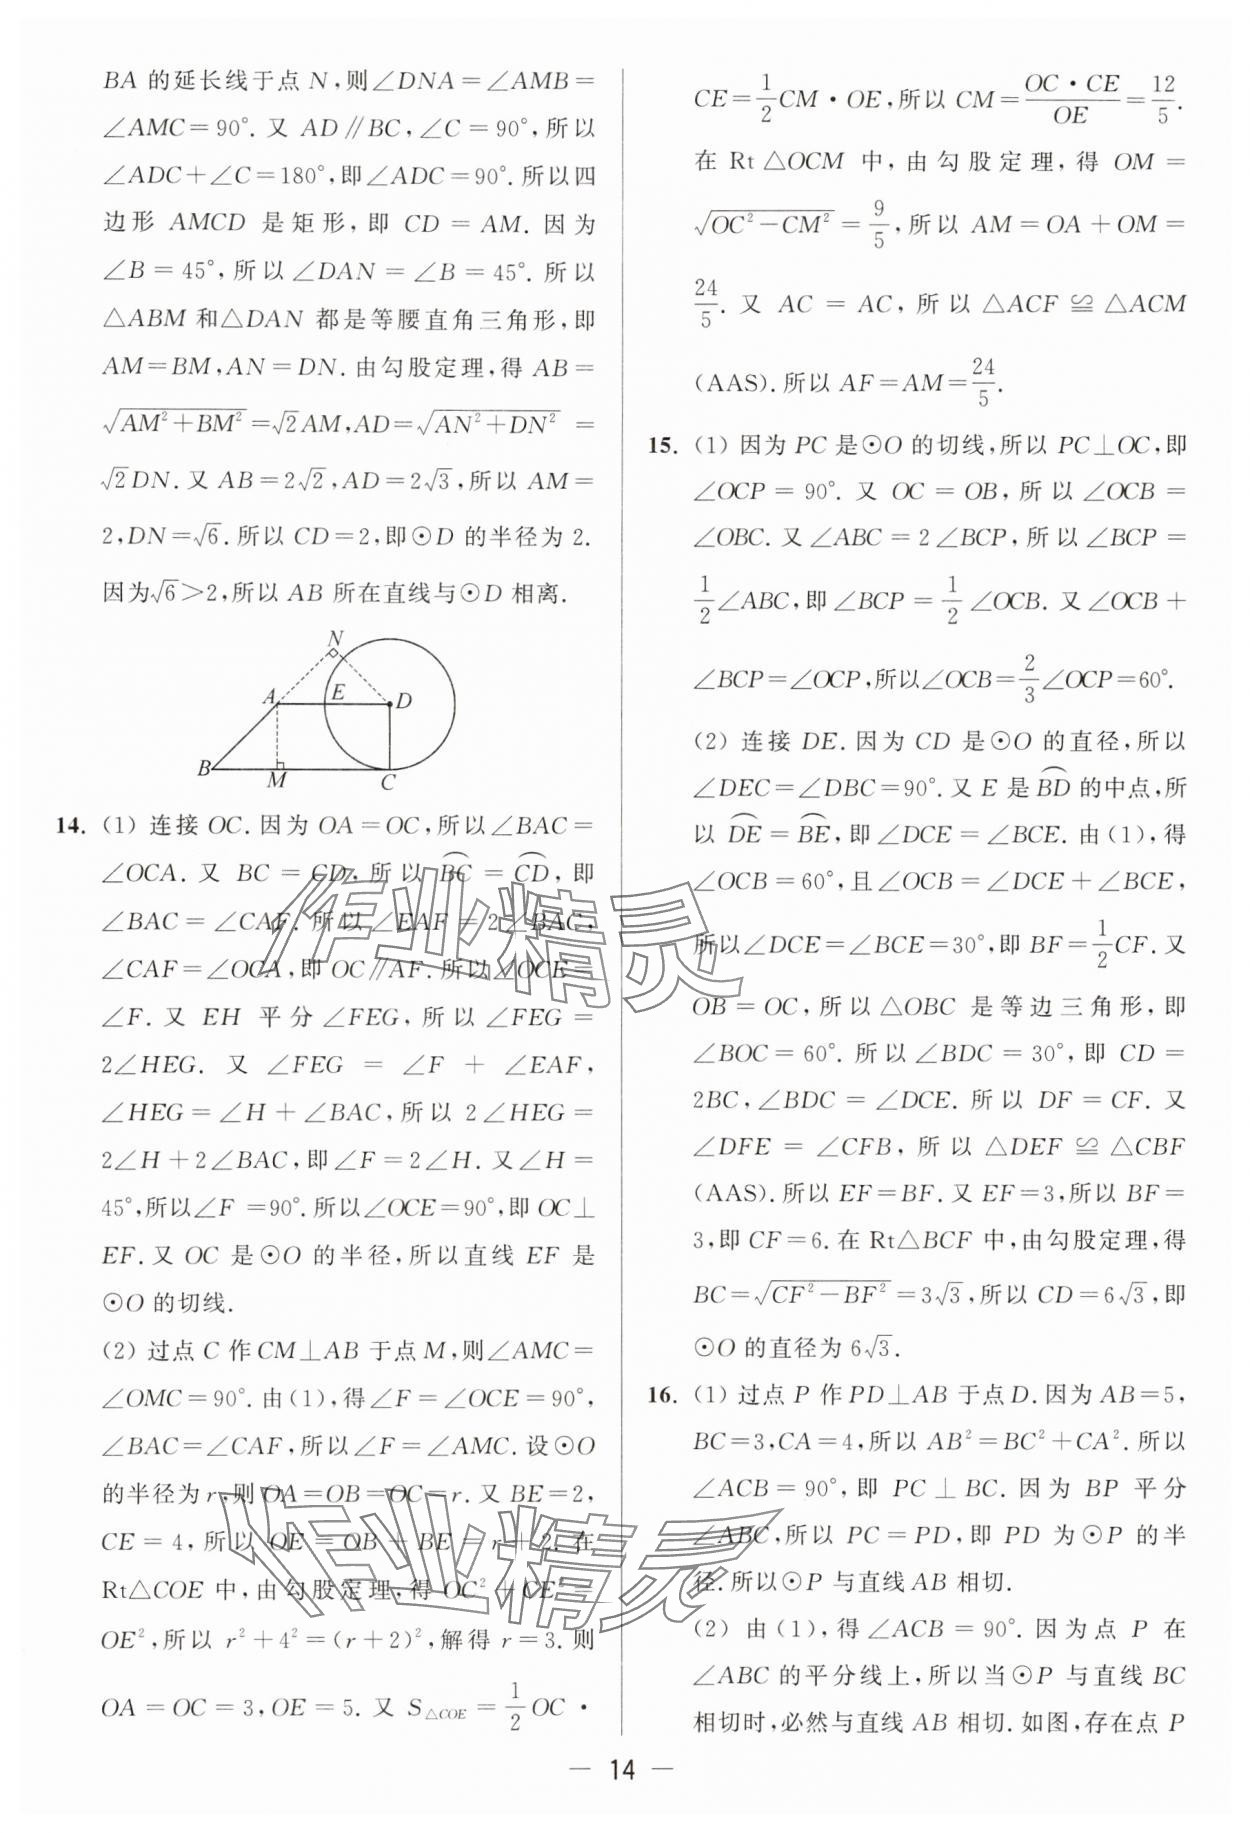 BA 的延长线于点 N,则∠DNA=∠AMB=
∠AMC=90°.又 AD∥BC,∠C=90°,所以
∠ADC+∠C=180°,即∠ADC=90°.所以四
边形 AMCD 是矩形,即 CD=AM.因为
∠B=45°,所以∠DAN=∠B=45°.所以
△ABM 和△DAN 都是等腰直角三角形,即
AM=BM,AN=DN.由勾股定理,得 AB=
√(AM²+BM²)=√2AM,AD=√(AN²+DN²)=
√2DN.又 AB=2√2,AD=2√3,所以 AM=
2,DN=√6.所以 CD=2,即⊙D 的半径为 2.
因为√6>2,所以 AB 所在直线与⊙D 相离.
N
A E D
B M C
14. (1) 连接 OC.因为 OA=OC,所以∠BAC=
∠OCA.又 BC=CD,所以 B͡C=C͡D,即
∠BAC=∠CAF.所以∠EAF=2∠BAC,
∠CAF=∠OCA,即 OC∥AF.所以∠OCE=
∠F.又 EH 平分∠FEG,所以∠FEG=
2∠HEG.又∠FEG=∠F+∠EAF,
∠HEG=∠H+∠BAC,所以 2∠HEG=
2∠H+2∠BAC,即∠F=2∠H.又∠H=
45°,所以∠F=90°.所以∠OCE=90°,即 OC⊥
EF.又 OC 是⊙O 的半径,所以直线 EF 是
⊙O 的切线.
(2) 过点 C 作 CM⊥AB 于点 M,则∠AMC=
∠OMC=90°.由(1),得∠F=∠OCE=90°,
∠BAC=∠CAF,所以∠F=∠AMC.设⊙O
的半径为 r,则 OA=OB=OC=r.又 BE=2,
CE=4,所以 OE=OB+BE=r+2.在
Rt△COE 中,由勾股定理,得 OC²+CE²=
OE²,所以 r²+4²=(r+2)²,解得 r=3.则
OA=OC=3,OE=5.又 S△COE=1/2 OC·
CE=1/2 CM·OE,所以 CM=(OC·CE)/OE=12/5.
在 Rt△OCM 中,由勾股定理,得 OM=
√(OC²-CM²)=9/5,所以 AM=OA+OM=
24/5.又 AC=AC,所以△ACF≌△ACM
(AAS).所以 AF=AM=24/5.
15. (1) 因为 PC 是⊙O 的切线,所以 PC⊥OC,即
∠OCP=90°.又 OC=OB,所以∠OCB=
∠OBC.又∠ABC=2∠BCP,所以∠BCP=
1/2∠ABC,即∠BCP=1/2∠OCB.又∠OCB+
∠BCP=∠OCP,所以∠OCB=2/3∠OCP=60°.
(2) 连接 DE.因为 CD 是⊙O 的直径,所以
∠DEC=∠DBC=90°.又 E 是 B͡D 的中点,所
以 D͡E=B͡E,即∠DCE=∠BCE.由(1),得
∠OCB=60°,且∠OCB=∠DCE+∠BCE,
所以∠DCE=∠BCE=30°,即 BF=1/2 CF.又
OB=OC,所以△OBC 是等边三角形,即
∠BOC=60°.所以∠BDC=30°,即 CD=
2BC,∠BDC=∠DCE.所以 DF=CF.又
∠DFE=∠CFB,所以△DEF≌△CBF
(AAS).所以 EF=BF.又 EF=3,所以 BF=
3,即 CF=6.在 Rt△BCF 中,由勾股定理,得
BC=√(CF²-BF²)=3√3,所以 CD=6√3,即
⊙O 的直径为 6√3.
16. (1) 过点 P 作 PD⊥AB 于点 D.因为 AB=5,
BC=3,CA=4,所以 AB²=BC²+CA².所以
∠ACB=90°,即 PC⊥BC.因为 BP 平分
∠ABC,所以 PC=PD,即 PD 为⊙P 的半
径.所以⊙P 与直线 AB 相切.
(2) 由(1),得∠ACB=90°.因为点 P 在
∠ABC 的平分线上,所以当⊙P 与直线 BC
相切时,必然与直线 AB 相切.如图,存在点 P
— 14 —
作业精灵
作业精灵